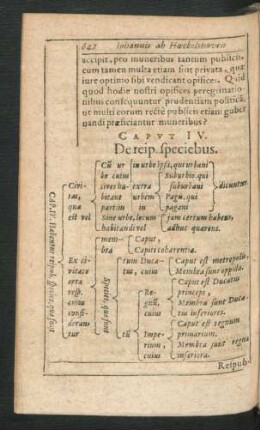 642 Iohannis ab Hoeckelshoven
accipit, pro muneribus tantum publicis,
cum tamen multa etiam sint privata, quæ
iure optimo sibi vendicant opifices. Quid
quod hodie nostri opifices peregrinatio-
nibus consequuntur prudentiam politicã,
ut multi eorum rectè publicis etiam guber
nandi præficiantur muneribus?
CAPVT IV.
De reip. speciebus.
CAP. IV. Habentur reipub. species, quæ sunt
Civi-
tas,
quæ
est vel
Cũ ur
be cuius
cives ha-
bitant
partim
in urbe ipsi, qui urbani
extra
urbem
Suburbio qui
suburbani
Pago, qui
pagani
dicuntur.
Sine urbe, locum
habitandi vel
jam certum habens,
adhuc quærens.
Ex ci-
vitate
orta
resp.
cuius
consi-
derantur
mem-
bra
Caput,
Capiti cohærentia.
Species, quæ sunt
cuius
Caput est metropolis,
Membra sunt oppida.
Re-
gnũ,
cuius
Caput est Ducatus
princeps,
Membra sunt Duca-
tus inferiores.
Impe-
rium,
cuius
Caput est regnum
primarium.
Membra sunt regna
inferiora.
Reipub-